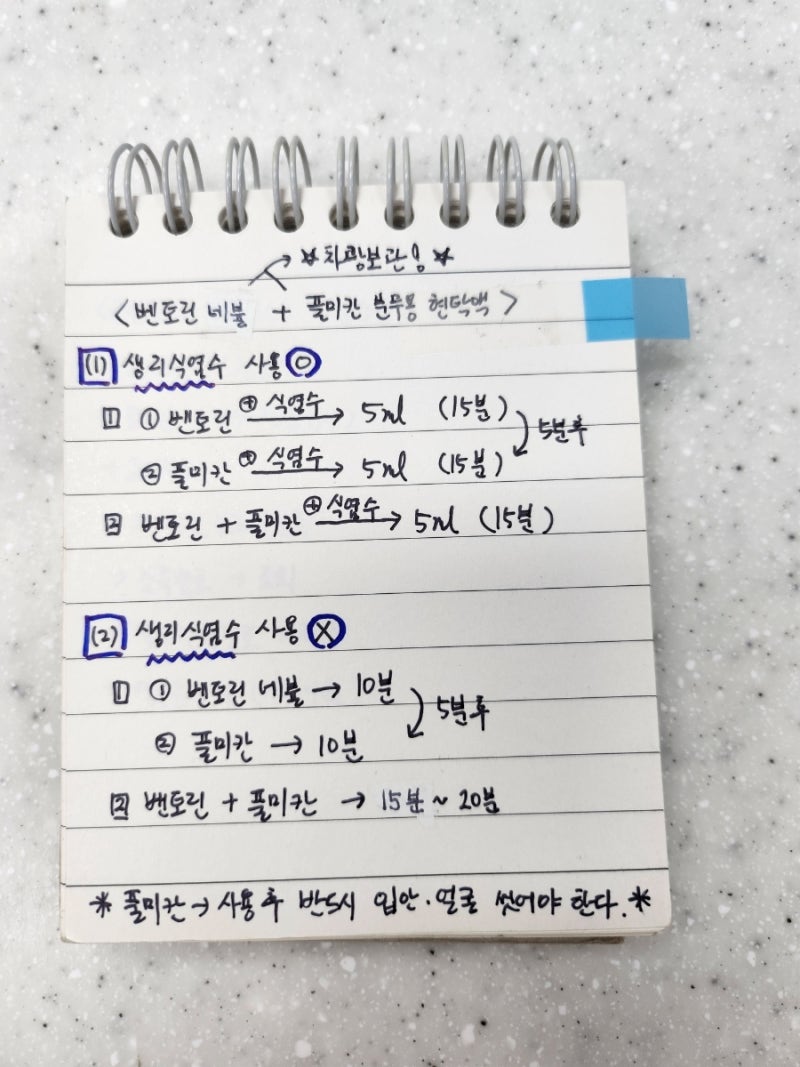 ☆차광보관용☆
<벤토린 네뷸 + 풀미칸 분무용 현탁액>
(1) 생리식염수 사용 O
1 ① 벤토린 ⊕식염수→ 5ml (15분)
5분후
② 풀미칸 ⊕식염수→ 5ml (15분)
2 벤토린 + 풀미칸 ⊕식염수→ 5ml (15분)
(2) 생리식염수 사용 X
1 ① 벤토린 네뷸 → 10분
5분후
② 풀미칸 → 10분
2 벤토린 + 풀미칸 → 15분 ~ 20분
* 풀미칸 → 사용 후 반드시 입안·얼굴 씻어야 한다. *